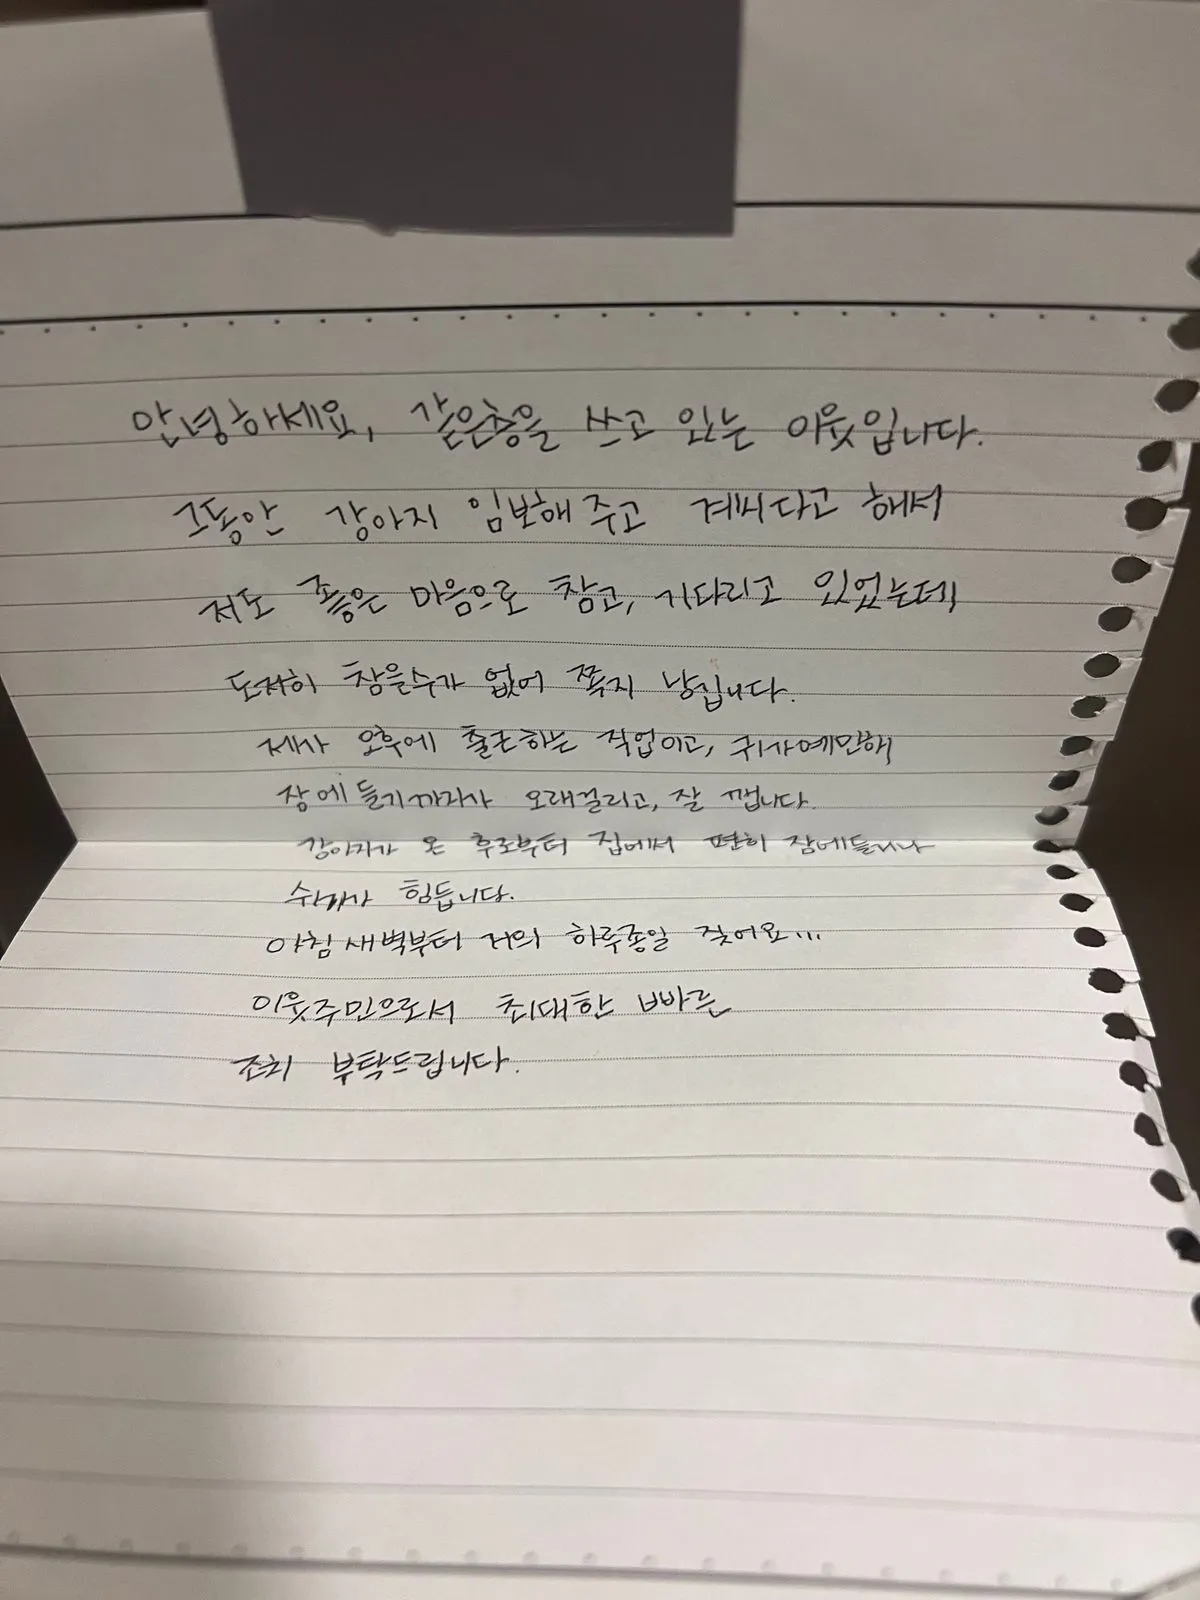 안녕하세요, 같은층을 쓰고 있는 이웃입니다.
그동안 강아지 임보해 주고 계씨다고 해서
저도 좋은 마음으로 참고, 기다리고 있었는데
도저히 참을수가 없어 쪽지 남깁니다.
제가 오후에 출근하는 직업이고, 귀가예민해
잠에 들기까지가 오래걸리고, 잘 깹니다.
강아지가 온 후로부터 집에서 편히 잠에들거나
쉬기가 힘듭니다.
아침 새벽부터 거의 하루종일 짖어요...
이웃주민으로서 최대한 빠른
조치 부탁드립니다.